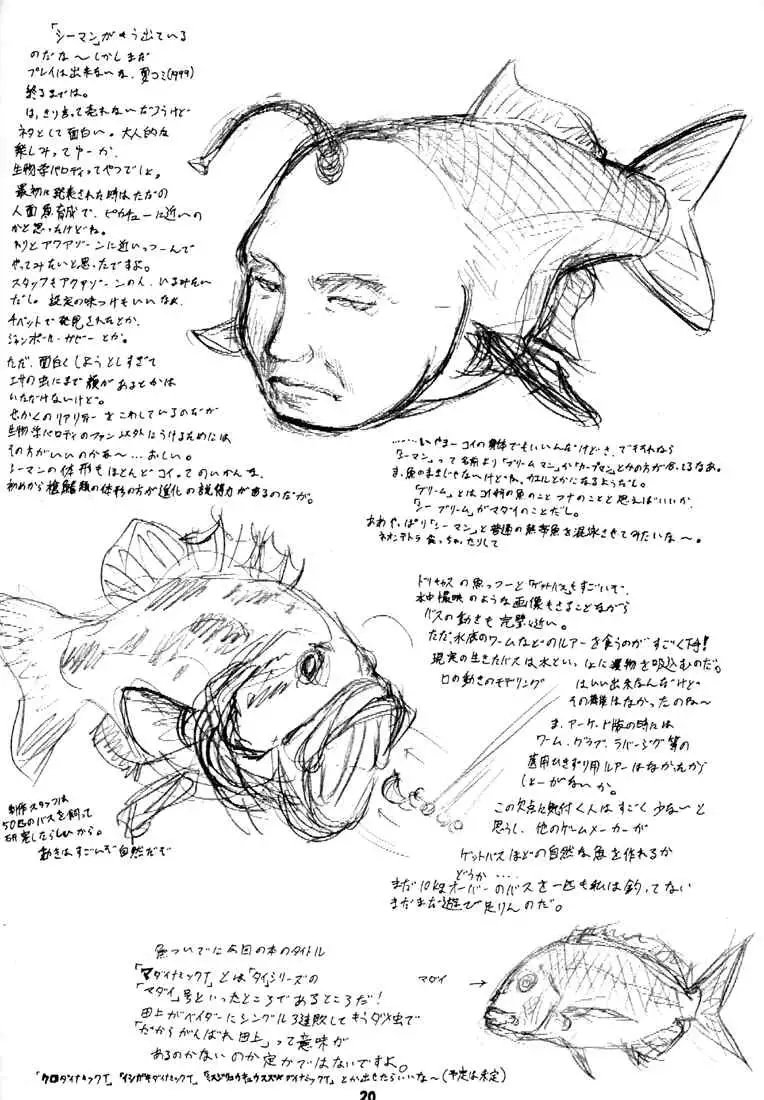 「シーマン」がもう出ている
のだな～しかしまだ
プレイは出来ないな、夏コミ(1999)
終るまでは。
は、きり言って売れないだろうけど
ネタとして面白い。大人的な
楽しみってゆーか、
生物学パロディってやつでしょ。
最初に発表された時はただの
人面魚育成で、ピカチューに近いの
かと思ったけどね。
わりとアクアゾーンに近いっつーんで
やってみたいと思ったですよ。
スタッフもアクアゾーンの人、いるみたい
だし。設定の味つけもいいなぁ、
チベットで発見されたとか、
ジャンポール・ガゼーとか。
ただ、面白くしようとしすぎて
エサの虫にまで顔があるとかは
いただけないけど。
せっかくのリアリティーをこわしているのだが
生物学パロディのファン以外にうけるためには
その方がいいのかな～…おしい。
シーマンの体形もほとんどコイってのいかんな、
初めから棱鰭類の体形の方が進化の説得力があるのだが。
……いやまーコイの身体でもいいんだけどさ、ですすれなら
「シーマン」って名前より「ブリームマン」か「カープマン」とかの方が合ってるなあ。
ま、魚のままじゃないけどね、カエルとかになるようだし。
「ブリーム」とはコイ科の魚のことフナのことと思えばいいか、
「シーブリーム」がマダイのことだし。
あぁやっぱり「シーマン」と普通の熱帯魚を混泳させてみたいな～。
ネオンテトラ食っちゃったりして
ドリキャスの魚っつーと「ゲットバス」もすごいぞ、
水中撮映のような画像もさることながら
バスの動きも完璧に近い。
ただ、水底のワームなどのルアーを食うのがすごく下手！
現実の生きたバスは水といっしょに獲物を吸込むのだ。
口の動きのモデリング
はいい出来なんだけど
その機能はなかったのね～
ま、アーケード版の時には
ワーム、グラブ、ラバージグ等の
底用ひきずり用ルアーはなかったから
しょーがないか。
この欠点に気付く人はすごく少ないと
思うし、他のゲームメーカーが
ゲットバスほどの自然な魚を作れるか
どうか….
まだ10kgオーバーのバスを一匹も私は釣ってない
まだまだ遊び足りんのだ。
制作スタッフは
50匹のバスを飼って
研究したらしいから。
動きはすごいぞ自然だぞ
魚ついでに今回の本のタイトル
「マダイナミックT」とは「タイ」シリーズの
「マダイ」号といったところであるところだ！
田上がベイダーにシングル3連敗してもうダメ虫で
「だからがんばれ田上」って意味が
あるのかないのか定かではないですよ。
マダイ →
「クロダイナミックT」「イシガキダイナミックT」「ミスジリュウキュウスズメダイナミックT」とか出せたらいいな～(予定は未定)
20